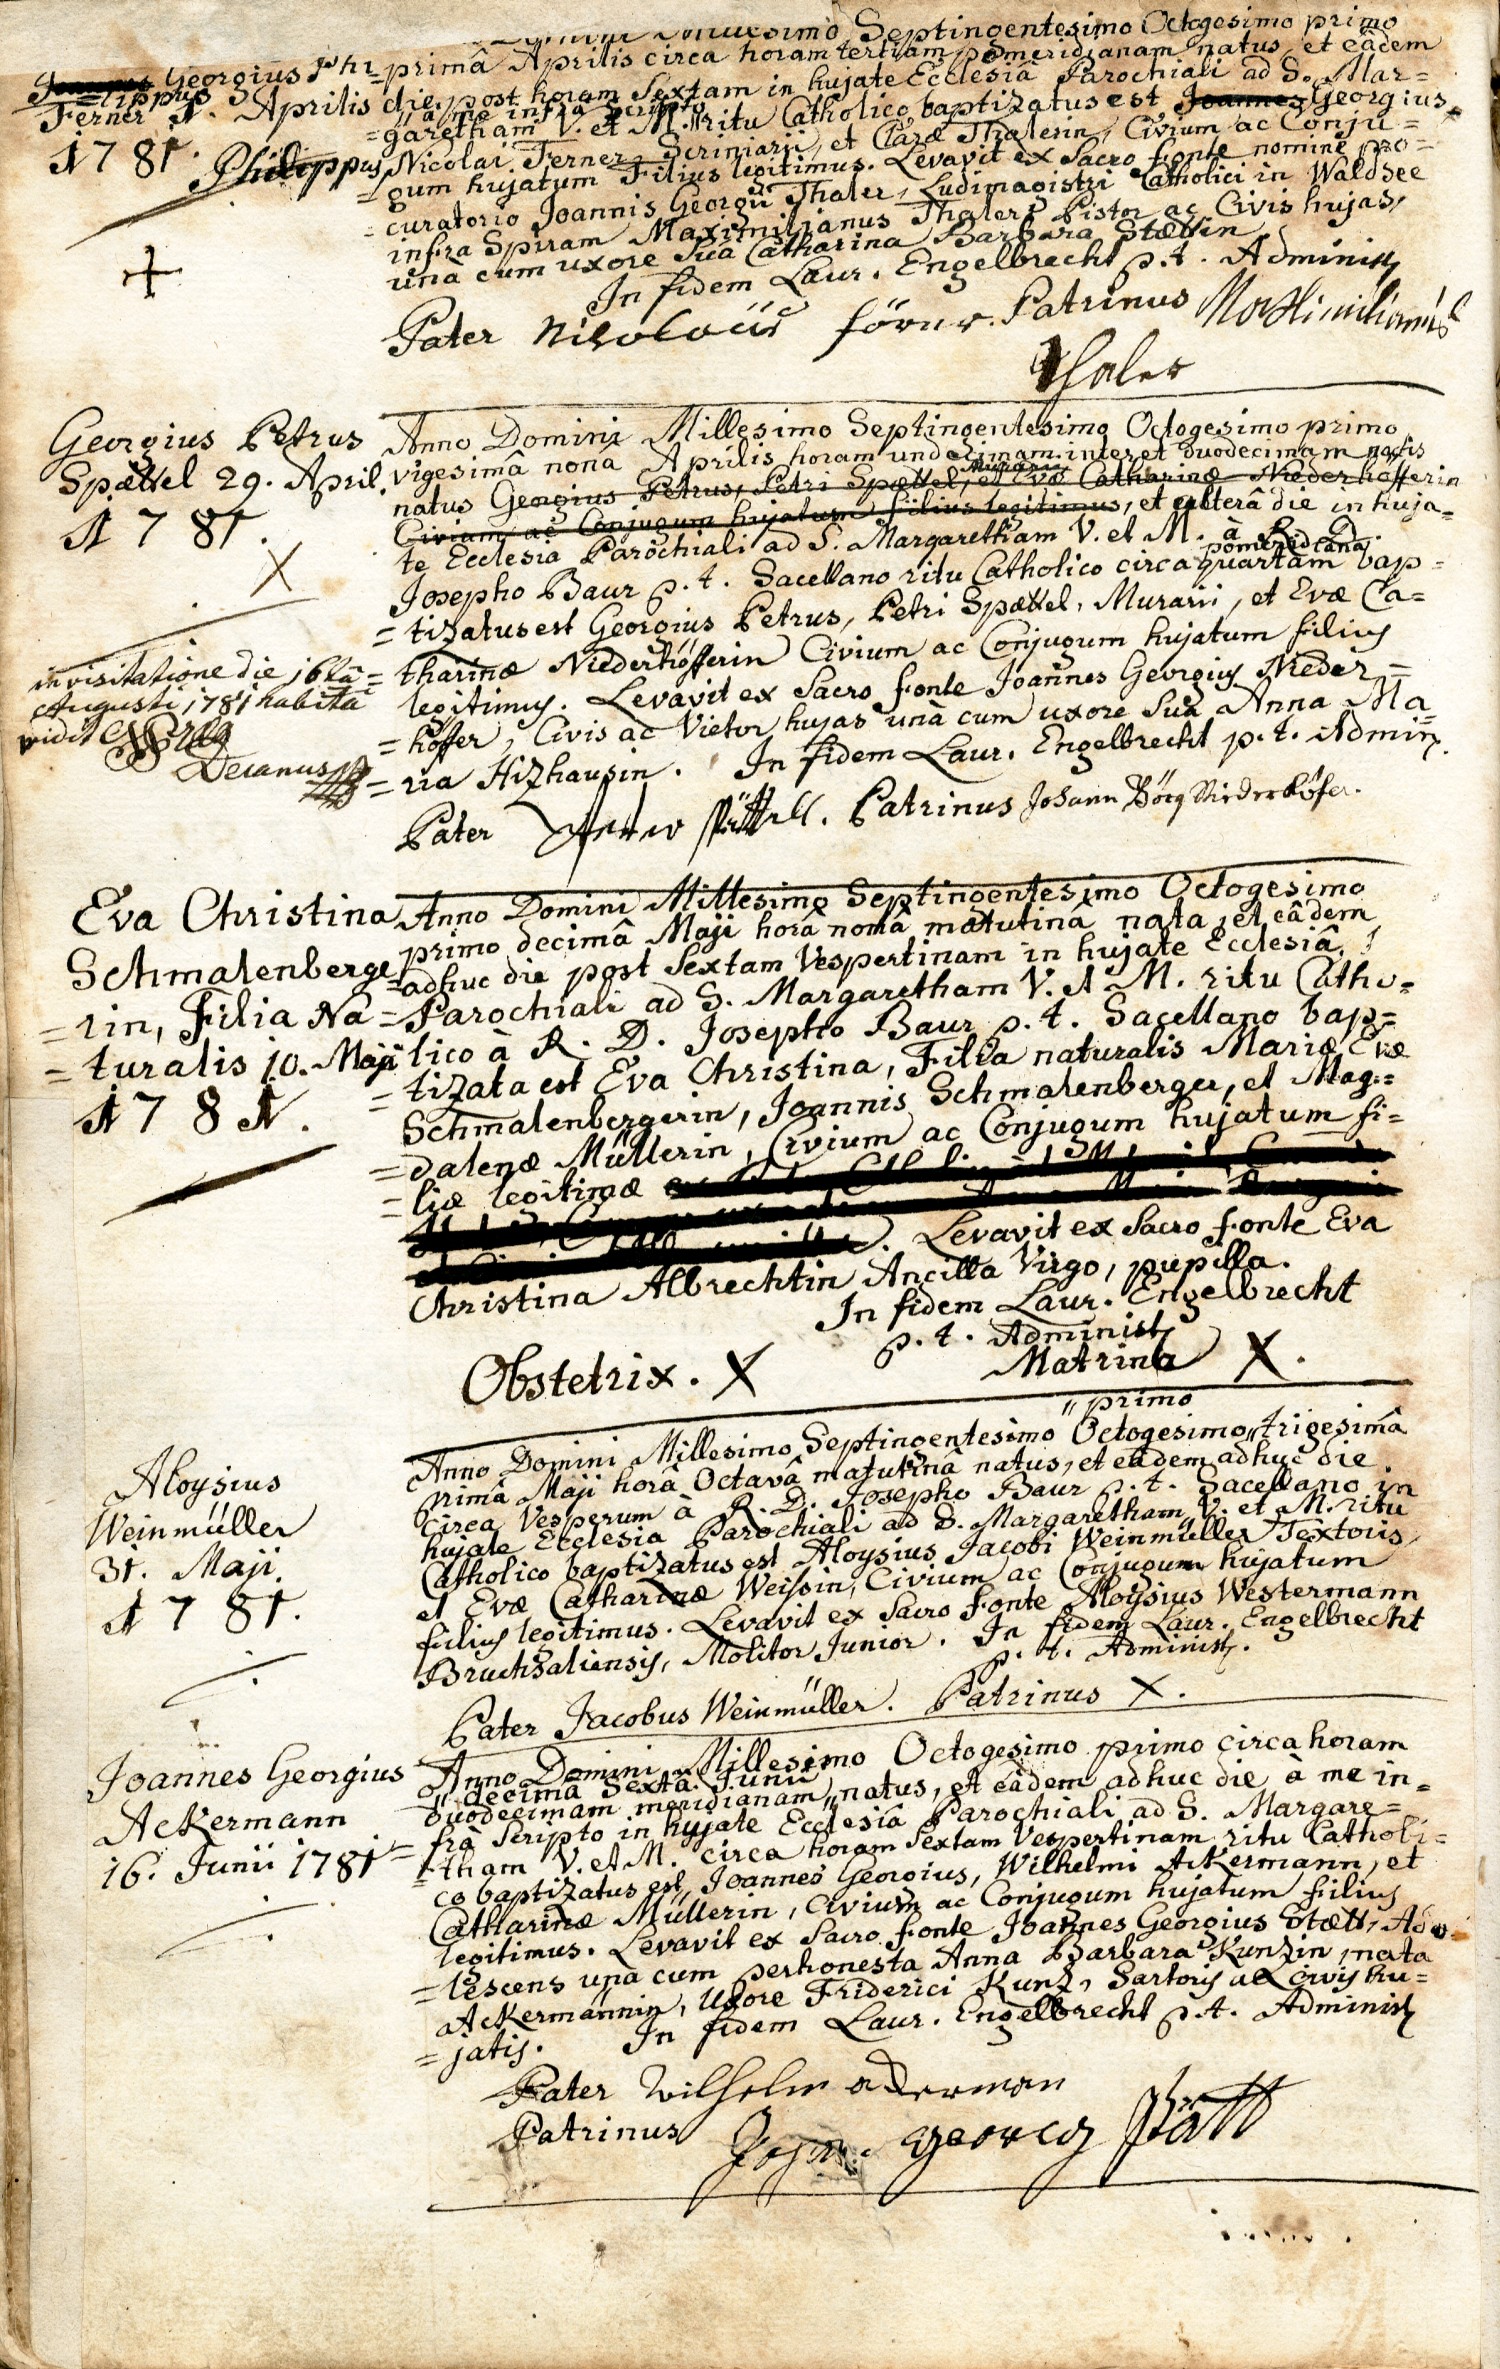 Septingentesimo Octogesimo primo
Georgius Phi=
=lippus
Ferner 1. Aprilis
1781.
Philippus
primâ Aprilis circa horam tertiam pomeridianam natus, et eâdem
die, post horam Sextam in hujate Ecclesiâ Parochiali ad S. Mar=
"à me infra scripto
=garetham V. et M. ritu Catholico baptizatus est Joannes Georgius
Nicolai Ferner, Scriniarii, et Claræ Thalerin, Civium ac Conju=
=gum hujatum Filius legitimus. Levavit ex Sacro fonte nomine pro=
=curatorio Joannis Georgii Thaler, Ludimagistri Catholici in Waldsee
infra Spiram Maximilianus Thaler, Pistor ac Civis hujas,
unà cum uxore Suâ Catharina Barbara Stættin
In fidem Laur. Engelbrecht p. t. Administ
Pater Nicolaus förner. Patrinus Maximilianus
Thaler
Georgius Petrus
Spættel 29. April.
1781.
X
in visitatione die 16tâ
Augusti 1781 habita
vidit
Decanus
Anno Domini Millesimo Septingentesimo Octogesimo primo
vigesimâ nonâ Aprilis horam undecimam inter et duodecimam noctis
Murarii
natus Georgius Petrus, Petri Spættel, et Evæ Catharinæ Niederhofferin
Civium ac Conjugum hujatum filius legitimus, et alterâ die in huja=
te Ecclesiâ Parochiali ad S. Margaretham V. et M. à R. D.
pomeridianâ
Josepho Baur p. t. Sacellano ritu Catholico circa quartam bap=
=tizatus est Georgius Petrus, Petri Spættel, Murarii, et Evæ Ca=
=tharinæ Niederhöfferin Civium ac Conjugum hujatum filius
legitimus. Levavit ex Sacro fonte Joannes Georgius Nieder=
=höffer, Civis ac Vietor hujas unà cum uxore Suâ Anna Ma=
=ria Hizhausin. In fidem Laur. Engelbrecht p. t. Admin.
Pater Petter Spättell. Patrinus Johann Görg Niederhöfer.
Eva Christina
Schmalenberge
=rin, Filia Na=
=turalis 10. Maji
1781.
Anno Domini Millesimo Septingentesimo Octogesimo
primo decimâ Maji horâ nonâ matutinâ nata, et eâdem
adhuc die post Sextam Vespertinam in hujate Ecclesiâ
Parochiali ad S. Margaretham V. et M. ritu Catho=
lico à R. D. Josepho Baur p. t. Sacellano bap=
=tizata est Eva Christina, Filia naturalis Mariæ Evæ
Schmalenbergerin, Joannis Schmalenberger, et Mag=
=dalenæ Müllerin, Civium ac Conjugum hujatum fi=
=liæ legitimæ
. Levavit ex Sacro fonte Eva
Christina Albrechtin Ancilla Virgo, pupilla.
In fidem Laur. Engelbrecht
p. t. Administ
Obstetrix. X Matrina X.
Aloysius
Weinmüller
31. Maji.
1781.
" primo
Anno Domini Millesimo Septingentesimo Octogesimo" trigesimâ
primâ Maji horâ Octavâ matutinâ natus, et eâdem adhuc die
circa Vesperum à R. D. Josepho Baur p. t. Sacellano in
hujate Ecclesia Parochiali ad S. Margaretham V. et M. ritu
Catholico baptizatus est Aloysius, Jacobi Weinmüller Textoris,
et Evæ Catharinæ Weissin, Civium ac Conjugum hujatum
filius legitimus. Levavit ex Sacro fonte Aloysius Westermann
Bruchsaliensis, Molitor Junior. In fidem Laur. Engelbrecht
p. t. Administ.
Pater Jacobus Weinmüller. Patrinus X.
Joannes Georgius
Ackermann
16. Junii 1781
Anno Domini Millesimo Octogesimo primo circa horam
" decimâ Sextâ Junii
duodecimam meridianam" natus, et eâdem adhuc die à me in=
=frà Scripto in hujate Ecclesiâ Parochiali ad S. Margare=
=tham V. et M. circa horam Sextam Vespertinam ritu Catholi=
co baptizatus est Joannes Georgius, Wilhelmi Ackermann, et
Catharinæ Müllerin, Civium ac Conjugum hujatum filius
legitimus. Levavit ex Sacro fonte Joannes Georgius Stætt, Ado=
=lescens unà cum perhonesta Anna Barbara Kunzin, nata
Ackermännin, Uxore Friderici Kunz, Sartoris ac Civis hu=
=jatis. In fidem Laur. Engelbrecht p. t. Administ
Pater Wilhelm ackerman
Patrinus Johan georg Stätt